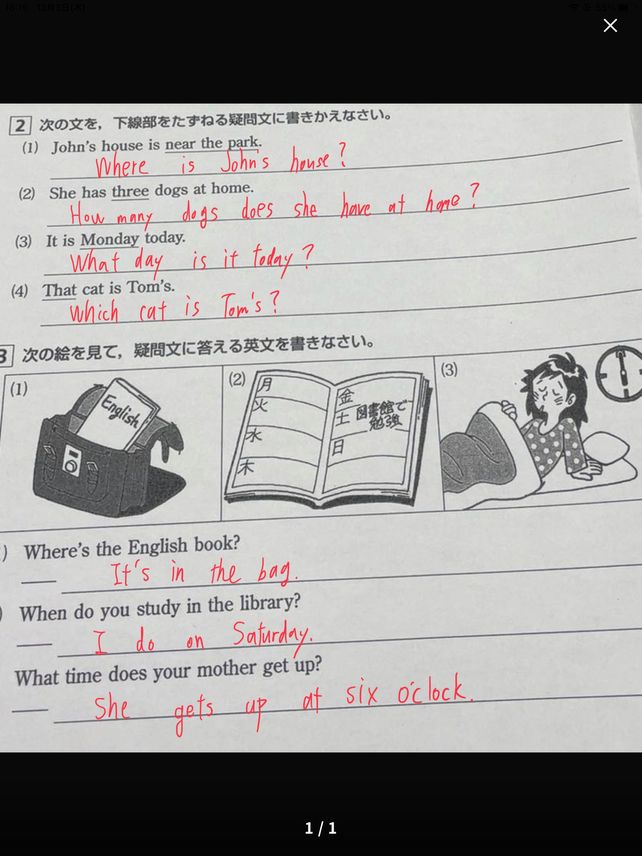 2 次の文を，下線部をたずねる疑問文に書きかえなさい。
(1) John's house is near the park.
Where is John's house?
(2) She has three dogs at home.
How many dogs does she have at home?
(3) It is Monday today.
What day is it today?
(4) That cat is Tom's.
Which cat is Tom's?
3 次の絵を見て，疑問文に答える英文を書きなさい。
(1)
English
(2)
月
火
水
木
金
土 図書館で
勉強
日
(3)
) Where's the English book?
It's in the bag.
) When do you study in the library?
I do on Saturday.
What time does your mother get up?
She gets up at six o'clock.
1 / 1